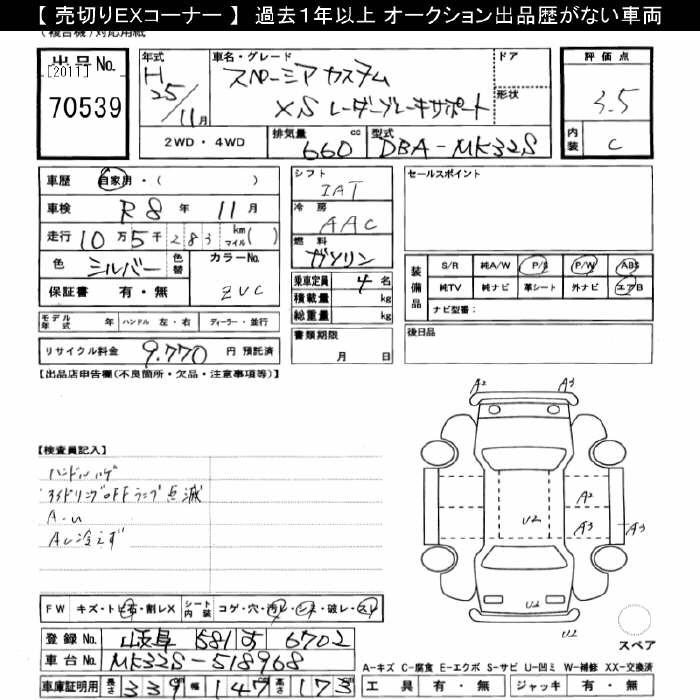 【 売切りEXコーナー 】 過去1年以上 オークション出品歴がない車両
(複合機)対応用紙
出品 No.
[2011]
70539
年式
H
25/11月
車名・グレード
スペーシア カスタム
XS レーダーブレーキサポート
ドア
形状
評価点
3.5
内装
C
2WD・4WD
排気量 660 cc
型式 DBA-MK32S
車歴 自家用・( )
車検 R8年 11月
走行 10万5千283 km マイル( )
色 シルバー 色替
カラーNo. ZVC
保証書 有・無
モデル年式 年 ハンドル 左・右 ディーラー・並行
リサイクル料金 9.770 円 預託済
シフト
IAT
冷房
AAC
燃料
ガソリン
乗車定員 4 名
積載量 kg
総重量 kg
書類期限
月 日
セールスポイント
装備品
S/R 純A/W P/S P/W ABS
純TV 純ナビ 革シート 外ナビ エアB
ナビ型番:
後日品
【出品店申告欄(不良箇所・欠品・注意事項等)】
【検査員記入】
ハンドルハゲ
アイドリングOFFランプ点滅
A-U
AC冷えず
A2 A3
A2
U2 A3 A3
U2
U2
スペア
FW キズ・トビ石・割レX
シート内装 コゲ・穴・汚レ・シミ・破レ・スレ
登録 No. 岐阜 581 す 6702
車台 No. MK32S-518968
車庫証明用 長さ 339 幅 147 高さ 173
A-キズ C-腐食 E-エクボ S-サビ U-凹ミ W-補修 XX-交換済
工具 有・無 ジャッキ 有・無